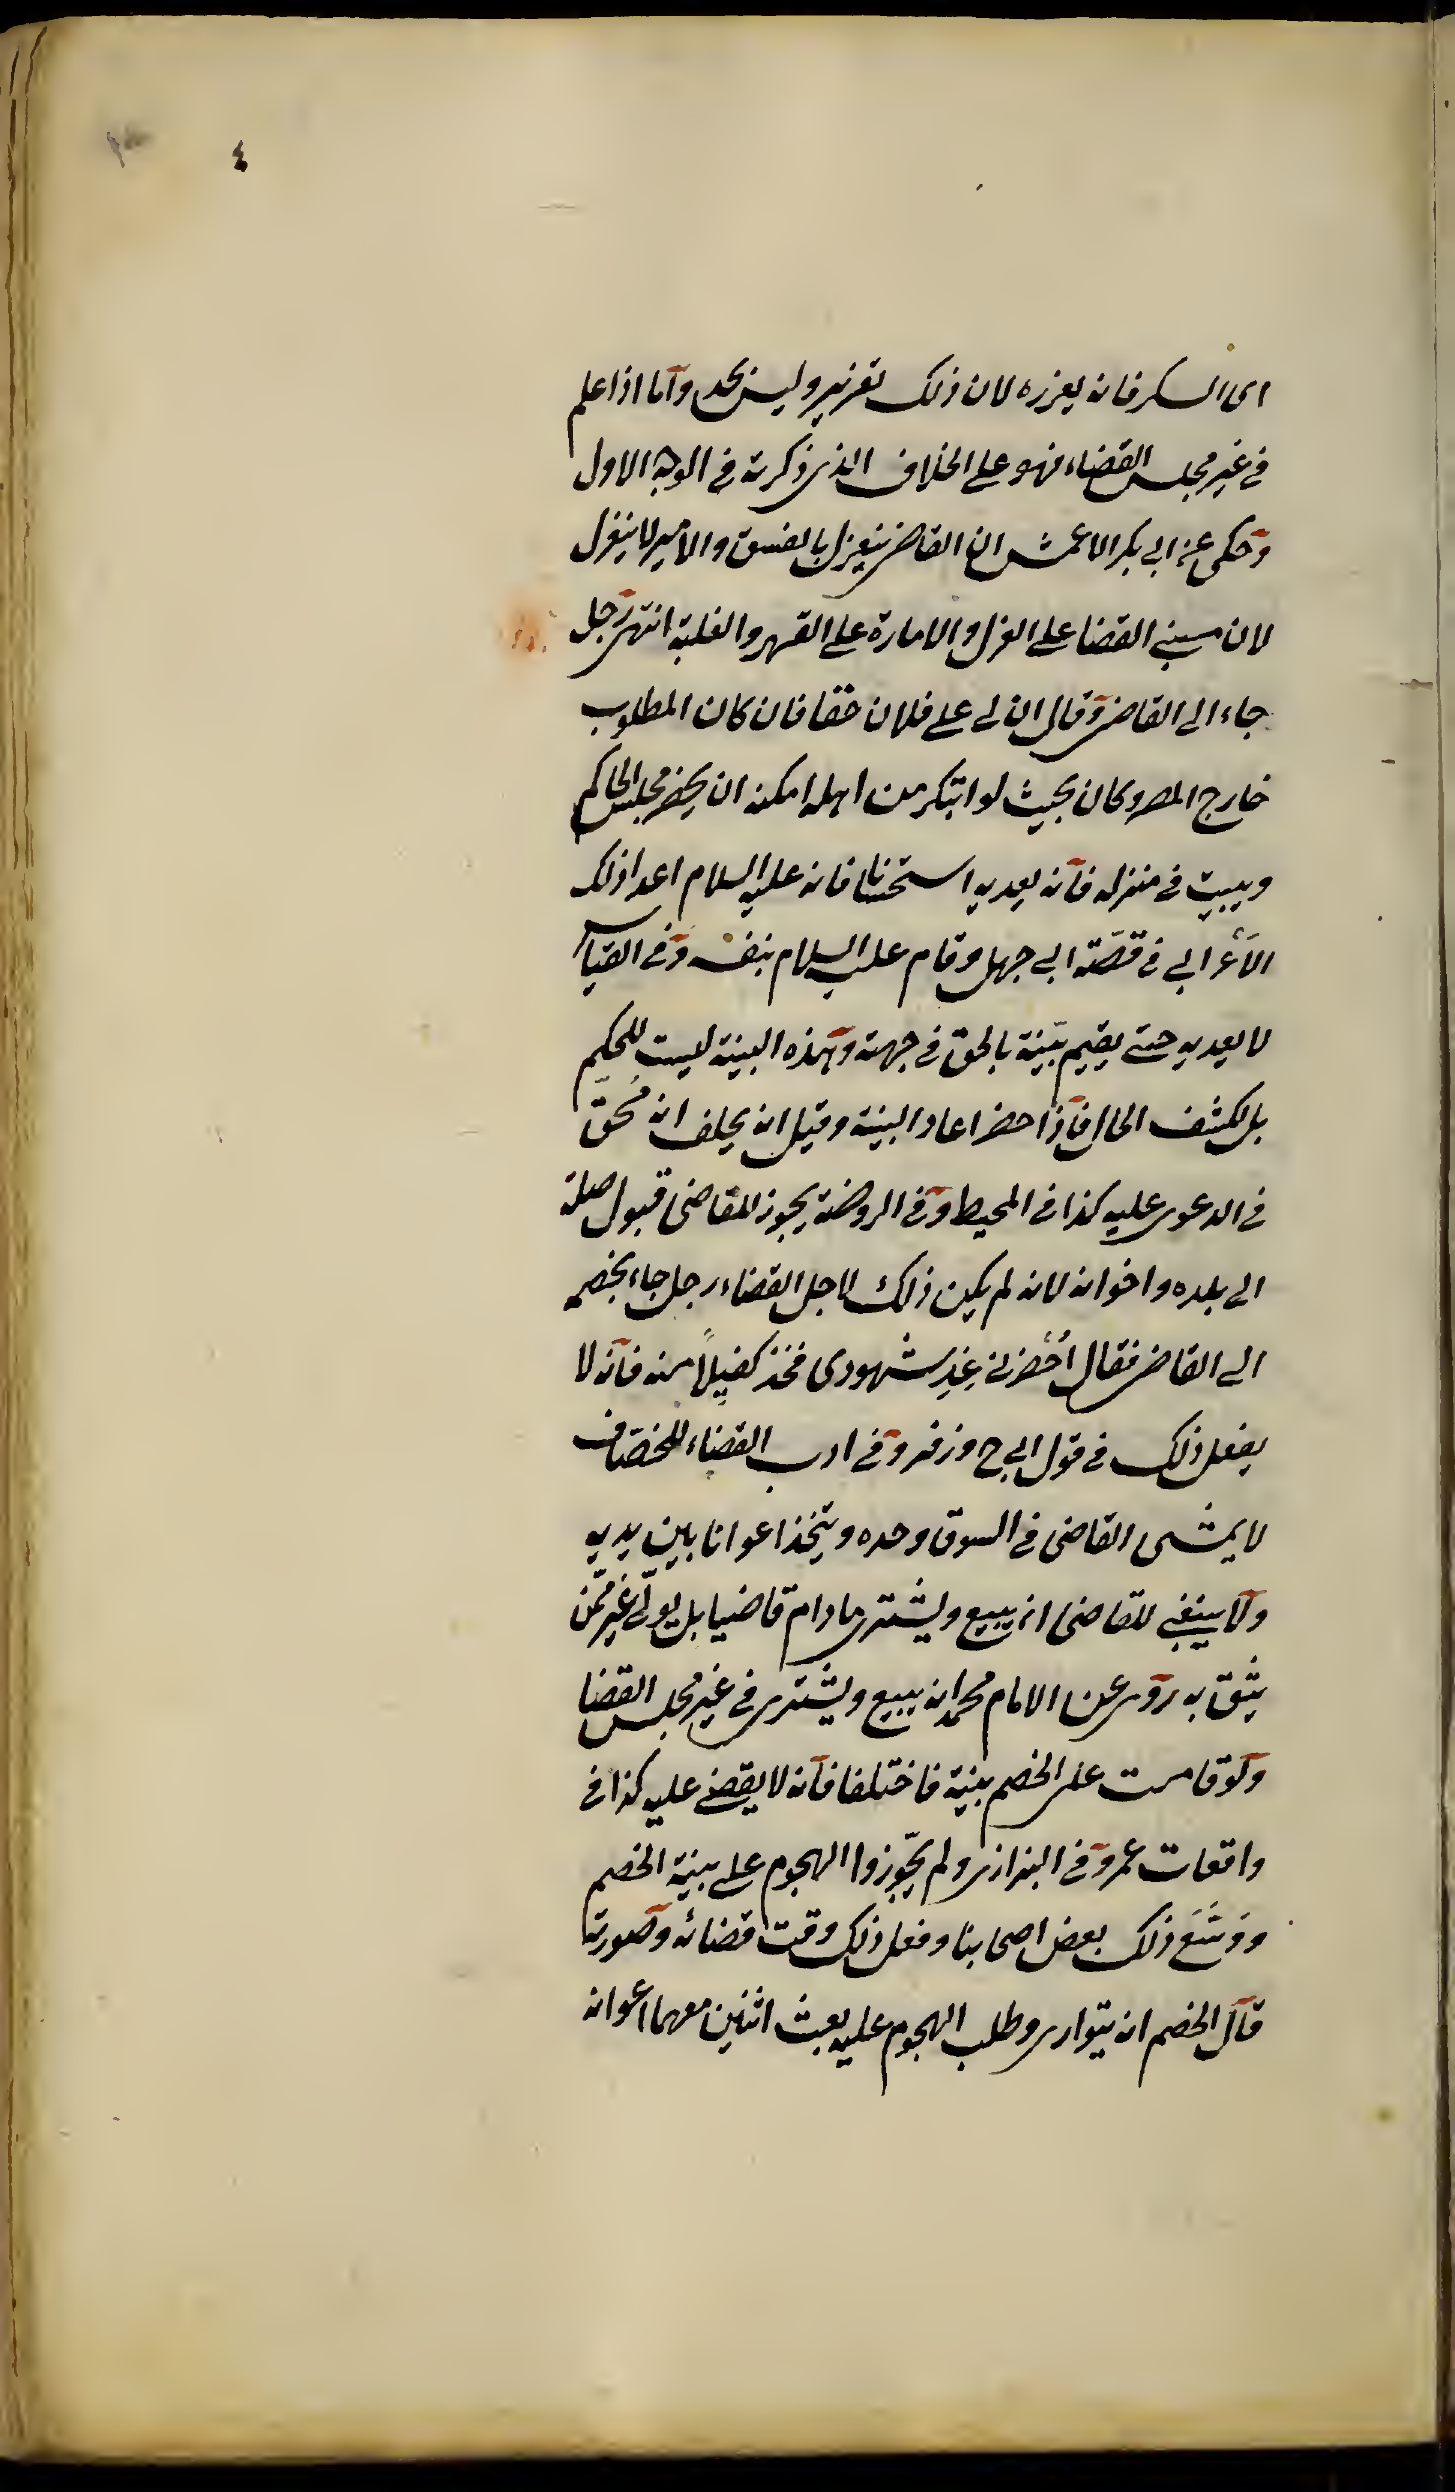 ٤
اى السكر فانه يعزره لان ذلك تعزير وليس بحد وآما اذا علم
فى غير مجلس القضاء فهو على الخلاف الذى ذكرته فى الوجه الاول
وحكى عن ابى بكر الاعمش ان القاضى ينعزل بالفسق والامير لا ينعزل
لان مبنى القضا على العزل والامارة على القهر والغلبة انتهى رجل
جاء الى القاضى وقال ان لى على فلان حقا فان كان المطلوب
خارج المصر وكان بحيث لو ابتكر من اهله امكنه ان يحضر مجلس الحاكم
ويبيت فى منزله فانه يعديه استحسانا فانه عليه السلام اعدا ذلك
الأعرابى فى قصّة ابى جهل وقام عليه السلام بنفسه وفى القياس
لا يعديه حتى يقيم بيّنة بالحق فى جهته وهذه البينة ليست للحكم
بل لكشف الحال فاذا حضر اعاد البينة وقيل انه يحلف انه مُحقّ
فى الدعوى عليه كذا فى المحيط وفى الروضة يجوز للقاضى قبول صلة
الى بلده واخوانه لانه لم يكن ذلك لاجل القضاء رجل جاء بخصم
الى القاضى فقال أُحضر فى غدٍ شهودى فخذ كفيلًا منه فانه لا
يفعل ذلك فى قول ابى ح وزفر وفى ادب القضاء للخصّاف
لا يمشى القاضى فى السوق وحده ويتخذ اعوانا بين يديه
ولا ينبغى للقاضى ان يبيع ويشترى مادام قاضيا بل يولّى غيره ممّن
يثق به روى عن الامام محمد انه يبيع ويشترى فى غير مجلس القضا
ولو قامت على الخصم بينة فاختلفا فانه لا يقضى عليه كذا فى
واقعات عمر وفى البزازى ولم يجوّزوا الهجوم على بينة الخصم
ووَسَّعَ ذلك بعض اصحابنا وفعل ذلك وقت قضائه وصورته
قال الخصم انه يتوارى وطلب الهجوم عليه بعث اثنين معهما اعوانه